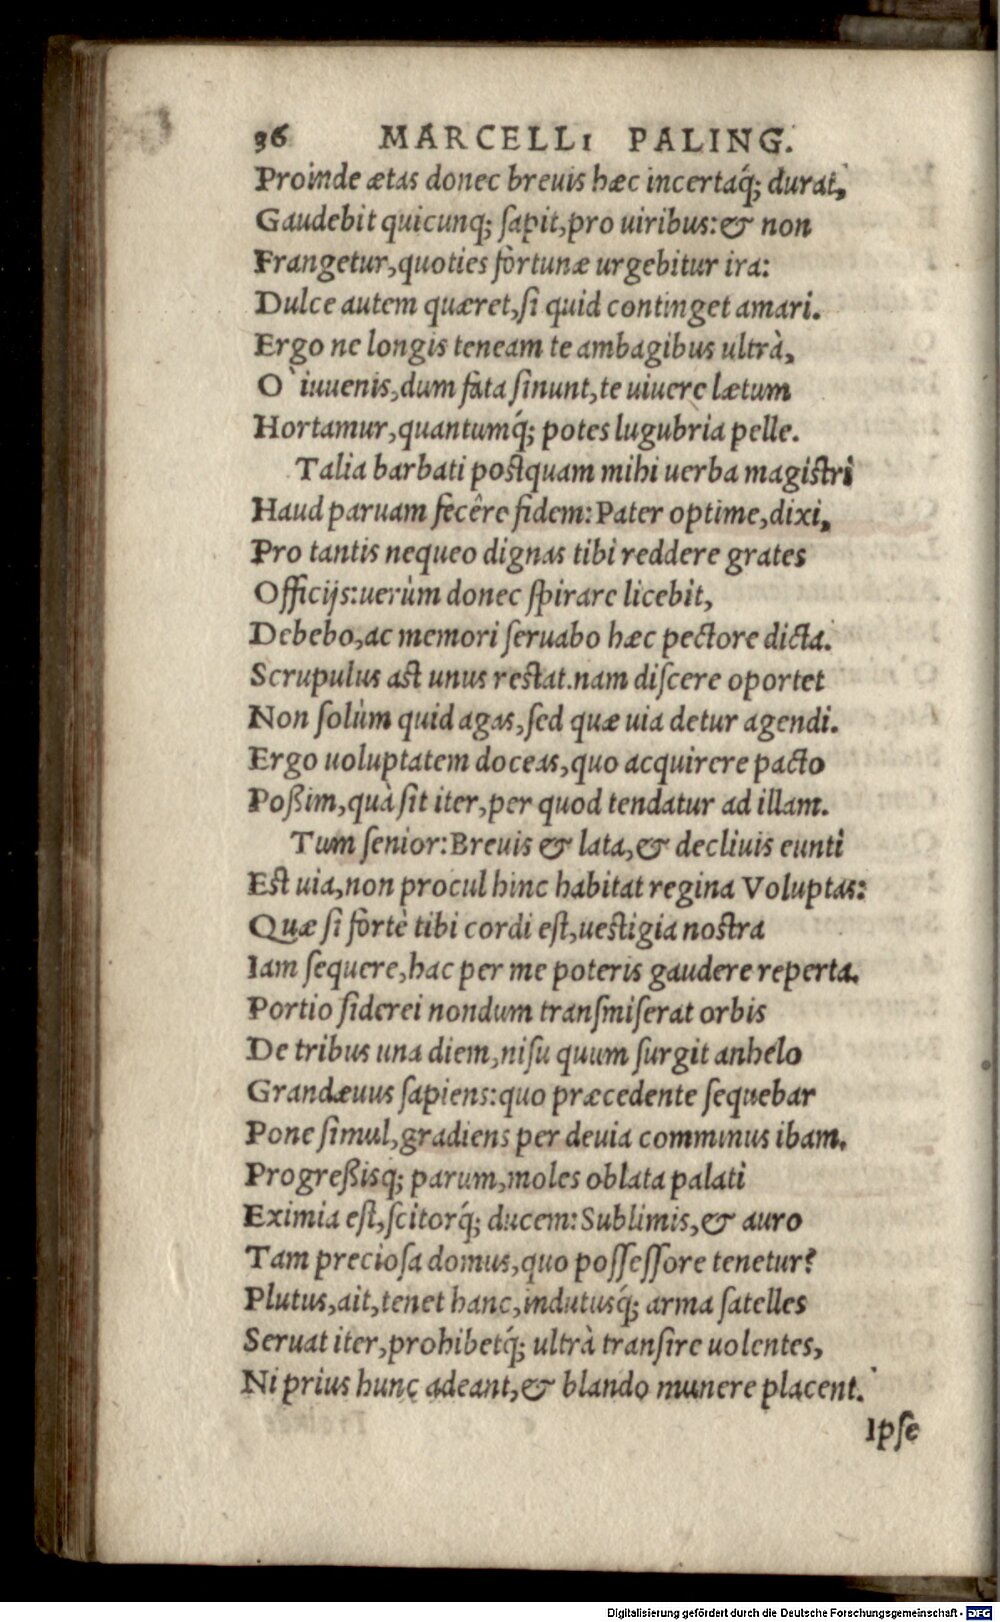 36 MARCELLI PALING.
Proinde ætas donec breuis hæc incertaq́; durat,
Gaudebit quicunq; ſapit, pro uiribus: & non
Frangetur, quoties fortunæ urgebitur ira:
Dulce autem quæret, ſi quid continget amari.
Ergo ne longis teneam te ambagibus ultrà,
O` iuuenis, dum fata ſinunt, te uiuere lætum
Hortamur, quantumq́; potes lugubria pelle.
Talia barbati poſtquam mihi uerba magiſtri
Haud paruam fecêre fidem: Pater optime, dixi,
Pro tantis nequeo dignas tibi reddere grates
Officijs: uerùm donec ſpirare licebit,
Debebo, ac memori ſeruabo hæc pectore dicta.
Scrupulus aſt unus reſtat. nam diſcere oportet
Non ſolùm quid agas, ſed quæ uia detur agendi.
Ergo uoluptatem doceas, quo acquirere pacto
Poßim, quà ſit iter, per quod tendatur ad illam.
Tum ſenior: Breuis & lata, & decliuis eunti
Eſt uia, non procul hinc habitat regina Voluptas:
Quæ ſi fortè tibi cordi eſt, ueſtigia noſtra
Iam ſequere, hac per me poteris gaudere reperta.
Portio ſiderei nondum tranſmiſerat orbis
De tribus una diem, niſu quum ſurgit anhelo
Grandæuus ſapiens: quo præcedente ſequebar
Pone ſimul, gradiens per deuia comminus ibam.
Progreßisq; parum, moles oblata palati
Eximia eſt, ſcitorq́; ducem: Sublimis, & auro
Tam precioſa domus, quo poſſeſſore tenetur?
Plutus, ait, tenet hanc, indutusq́; arma ſatelles
Seruat iter, prohibetq́; ultrà tranſire uolentes,
Ni prius hunc adeant, & blando munere placent.
Ipſe
Digitalisierung gefördert durch die Deutsche Forschungsgemeinschaft - DFG